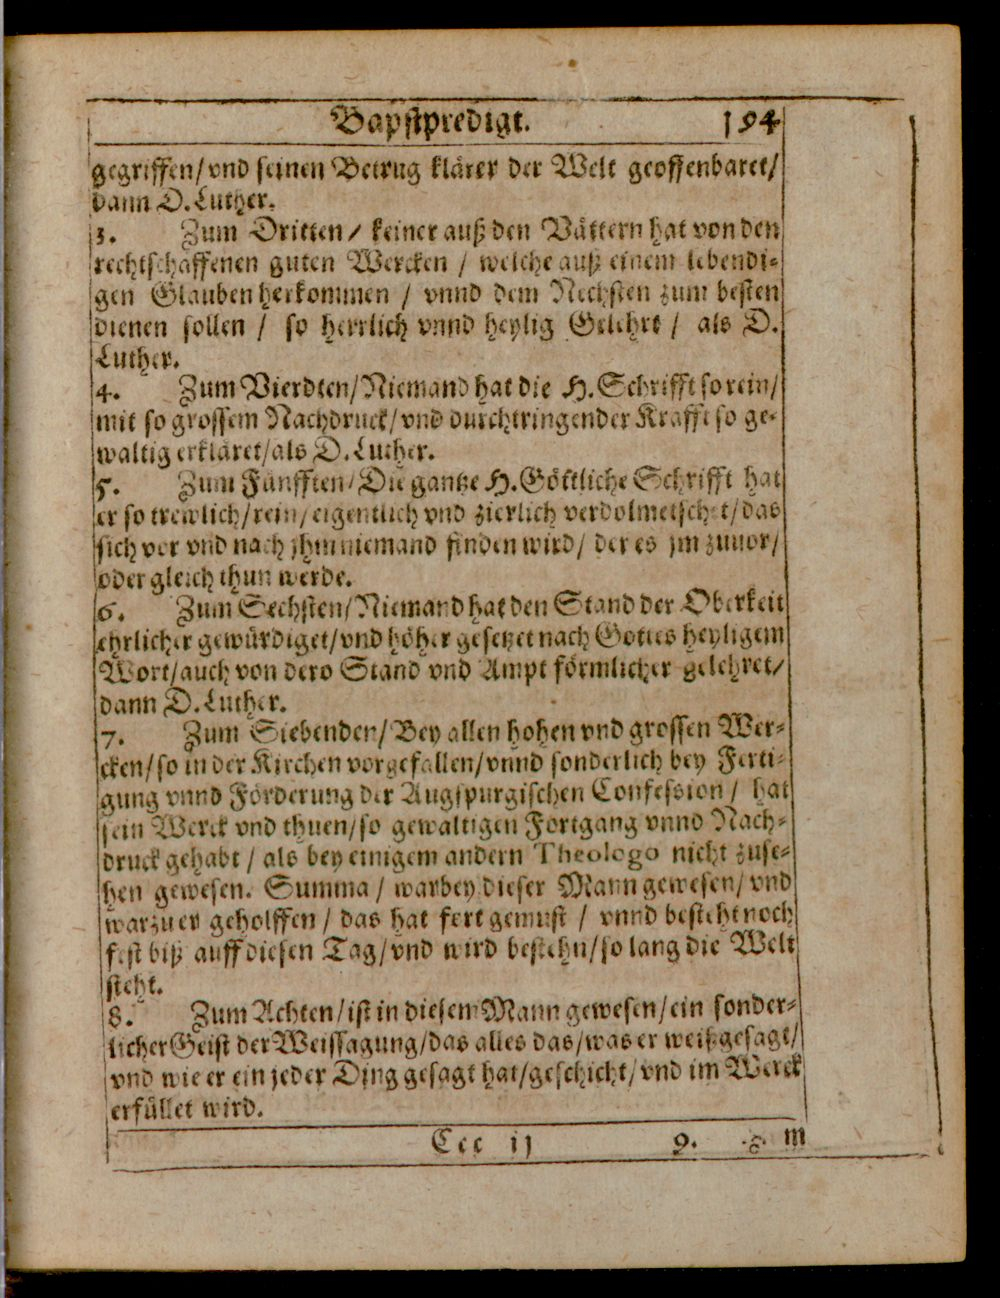 Bapstpredigt. 194
gegriffen/vnd seinen Betrug klärer der Welt geoffenbaret/
dann D. Luther.
3. Zum Dritten / keiner auß den Vättern hat von den
rechtschaffenen guten Wercken / welche auß einem lebendi-
gen Glauben herkommen / vnnd dem Nechsten zum besten
dienen sollen / so herrlich vnnd heylig Gelehrt / als D.
Luther.
4. Zum Vierdten/Niemand hat die H. Schrifft so rein/
mit so grossem Nachdruck/vnd durchtringender Krafft so ge-
waltig erkläret/als D. Luther.
5. Zum Fünfften/Die gantze H. Göttliche Schrifft hat
er so trewlich/rein/eigentlich vnd zierlich verdolmetschet/das
sich vor vnd nach jhm niemand finden wird/ der es jm zuuor/
oder gleich thun werde.
6. Zum Sechsten/Niemand hat den Stand der Oberkeit
ehrlicher gewürdiget/vnd höher gesetzet nach Gottes heyligem
Wort/auch von dero Stand vnd Ampt förmlicher gelehret/
dann D. Luther.
7. Zum Siebenden/Bey allen hohen vnd grossen Wer-
cken/so in der Kirchen vorgefallen/vnnd sonderlich bey Ferti-
gung vnnd Förderung der Augspurgischen Confession / hat
sein Werck vnd thuen/so gewaltigen Fortgang vnnd Nach-
druck gehabt / als bey einigem andern Theologo nicht zuse-
hen gewesen. Summa / warbey dieser Mann gewesen/ vnd
warzu er geholffen / das hat fort gemust / vnnd besteht noch
fest biß auff diesen Tag/vnd wird bestehn/so lang die Welt
steht.
8. Zum Achten/ist in diesem Mann gewesen/ein sonder-
licher Geist der Weissagung/das alles das/was er weißgesagt/
vnd wie er ein jeder Ding gesagt hat/geschicht/vnd im Werck
erfüllet wird.
Ccc ij 9.